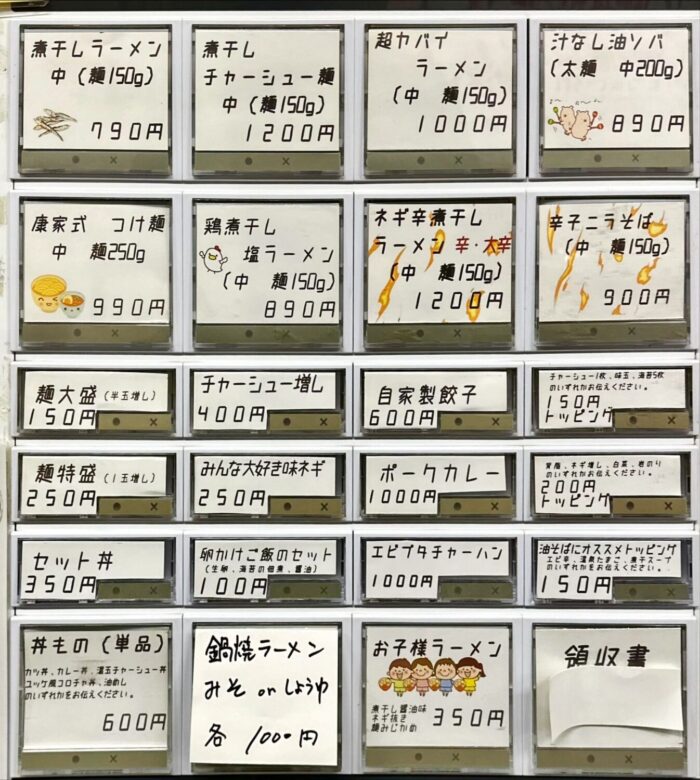 煮干しラーメン
中 (麺150g)
790円
煮干し
チャーシュー麺
中 (麺150g)
1200円
超ヤバイ
ラーメン
(中 麺150g)
1000円
汁なし油ソバ
(太麺 中200g)
890円
康家式 つけ麺
中 麺250g
990円
鶏煮干し
塩ラーメン
(中 麺150g)
890円
ネギ辛煮干し
ラーメン 辛・大辛
(中 麺150g)
1200円
辛子ニラそば
(中 麺150g)
900円
麺大盛(半玉増し)
150円
チャーシュー増し
400円
自家製餃子
600円
チャーシュー1枚、味玉、海苔5枚
のいずれかお伝えください。
150円
トッピング
麺特盛(1玉増し)
250円
みんな大好き味ネギ
250円
ポークカレー
1000円
背脂、ネギ増し、白菜、岩のり
のいずれかお伝えください。
200円
トッピング
セット丼
350円
卵かけご飯のセット
(生卵、海苔の佃煮、醤油)
100円
エビブタチャーハン
1000円
油そばにオススメトッピング
エビ辛、温泉たまご、煮干スープ
のいずれかをお伝えください。
150円
丼もの(単品)
カツ丼、カレー丼、温玉チャーシュー丼
ユッケ風コロチャ丼、油めし
のいずれかをお伝えください。
600円
鍋焼ラーメン
みそ or しょうゆ
各 1000円
お子様ラーメン
煮干し醤油味
ネギ抜き
麺みじかめ
350円
領収書